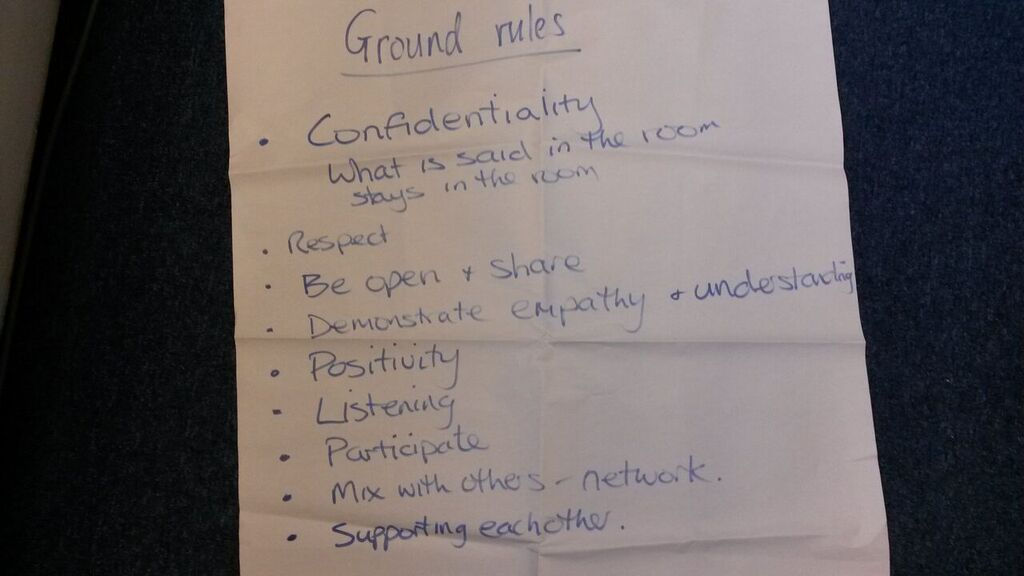 Ground rules
• Confidentiality
What is said in the room
stays in the room
• Respect
• Be open & share
• Demonstrate empathy & understanding
• Positivity
• Listening
• Participate
• Mix with others - network.
• Supporting eachother.